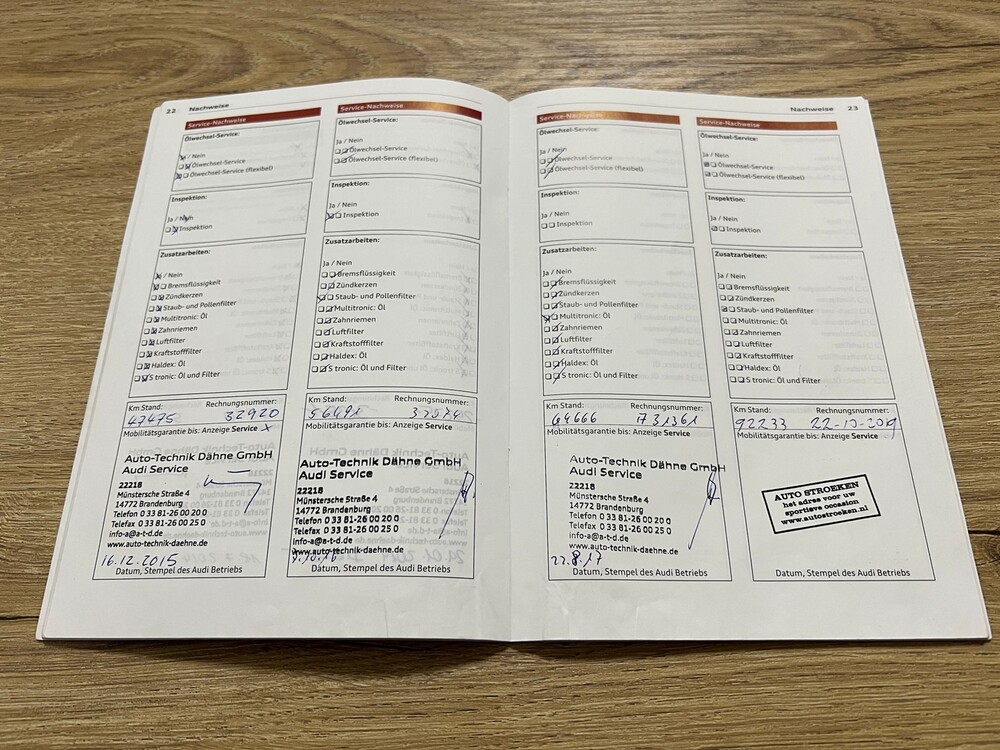 22 Nachweise
Service-Nachweise
Ölwechsel-Service:
Ja / Nein
Ölwechsel-Service
Ölwechsel-Service (flexibel)
Inspektion:
Ja / Nein
Inspektion
Zusatzarbeiten:
Ja / Nein
Bremsflüssigkeit
Zündkerzen
Staub- und Pollenfilter
Multitronic: Öl
Zahnriemen
Luftfilter
Kraftstofffilter
Haldex: Öl
S tronic: Öl und Filter
Km Stand: Rechnungsnummer:
47475 32920
Mobilitätsgarantie bis: Anzeige Service X
Auto-Technik Dähne GmbH
Audi Service
22218
Münstersche Straße 4
14772 Brandenburg
Telefon 0 33 81-26 00 20 0
Telefax 0 33 81-26 00 25 0
info-a@a-t-d.de
www.auto-technik-daehne.de
16.12.2015
Datum, Stempel des Audi Betriebs
Service-Nachweise
Ölwechsel-Service:
Ja / Nein
Ölwechsel-Service
Ölwechsel-Service (flexibel)
Inspektion:
Ja / Nein
Inspektion
Zusatzarbeiten:
Ja / Nein
Bremsflüssigkeit
Zündkerzen
Staub- und Pollenfilter
Multitronic: Öl
Zahnriemen
Luftfilter
Kraftstofffilter
Haldex: Öl
S tronic: Öl und Filter
Km Stand: Rechnungsnummer:
Mobilitätsgarantie bis: Anzeige Service
Auto-Technik Dähne GmbH
Audi Service
22218
Münstersche Straße 4
14772 Brandenburg
Telefon 0 33 81-26 00 20 0
Telefax 0 33 81-26 00 25 0
info-a@a-t-d.de
www.auto-technik-daehne.de
Datum, Stempel des Audi Betriebs
Nachweise 23
Service-Nachweise
Ölwechsel-Service:
Ja / Nein
Ölwechsel-Service
Ölwechsel-Service (flexibel)
Inspektion:
Ja / Nein
Inspektion
Zusatzarbeiten:
Ja / Nein
Bremsflüssigkeit
Zündkerzen
Staub- und Pollenfilter
Multitronic: Öl
Zahnriemen
Luftfilter
Kraftstofffilter
Haldex: Öl
S tronic: Öl und Filter
Km Stand: Rechnungsnummer:
64666 731361
Mobilitätsgarantie bis: Anzeige Service
Auto-Technik Dähne GmbH
Audi Service
22218
Münstersche Straße 4
14772 Brandenburg
Telefon 0 33 81-26 00 20 0
Telefax 0 33 81-26 00 25 0
info-a@a-t-d.de
www.auto-technik-daehne.de
22.8.17
Datum, Stempel des Audi Betriebs
Service-Nachweise
Ölwechsel-Service:
Ja / Nein
Ölwechsel-Service
Ölwechsel-Service (flexibel)
Inspektion:
Ja / Nein
Inspektion
Zusatzarbeiten:
Ja / Nein
Bremsflüssigkeit
Zündkerzen
Staub- und Pollenfilter
Multitronic: Öl
Zahnriemen
Luftfilter
Kraftstofffilter
Haldex: Öl
S tronic: Öl und Filter
Km Stand: Rechnungsnummer:
92233 22-10-2019
Mobilitätsgarantie bis: Anzeige Service
AUTO STROEKEN
het adres voor uw
sportieve occasion
www.autostroeken.nl
Datum, Stempel des Audi Betriebs